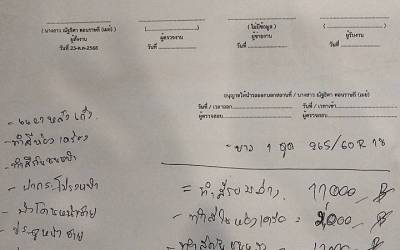 ( นางสาว ณัฐธิดา ตอนราศรี (เมย์) )
ผู้สั่งงาน
วันที่ 23-ต.ค-2568
( )
ผู้ตรวจงาน
วันที่
( ไม่มีข้อมูล )
ผู้จ่ายงาน
วันที่
( )
ผู้รับงาน
วันที่
อนุญาตให้นำรถออกนอกสถานที่ / นางสาว ณัฐธิดา ตอนราศรี (เมย์)
วันที่ / เวลาออก
วันที่ / เวลาเข้า
ผู้ตรวจสอบ
ผู้ตรวจสอบ
- ยาง 1 ชุด 265/60 R 18
- ทำสีห้องเครื่อง
- ทำสีกันชนหน้า
- ฝากระโปรงหน้า
- ประตูหน้าซ้าย
= ทำสีรอบล่าง 17,000 ฿
- ทำสีในห้องเครื่อง = 2,000 ฿